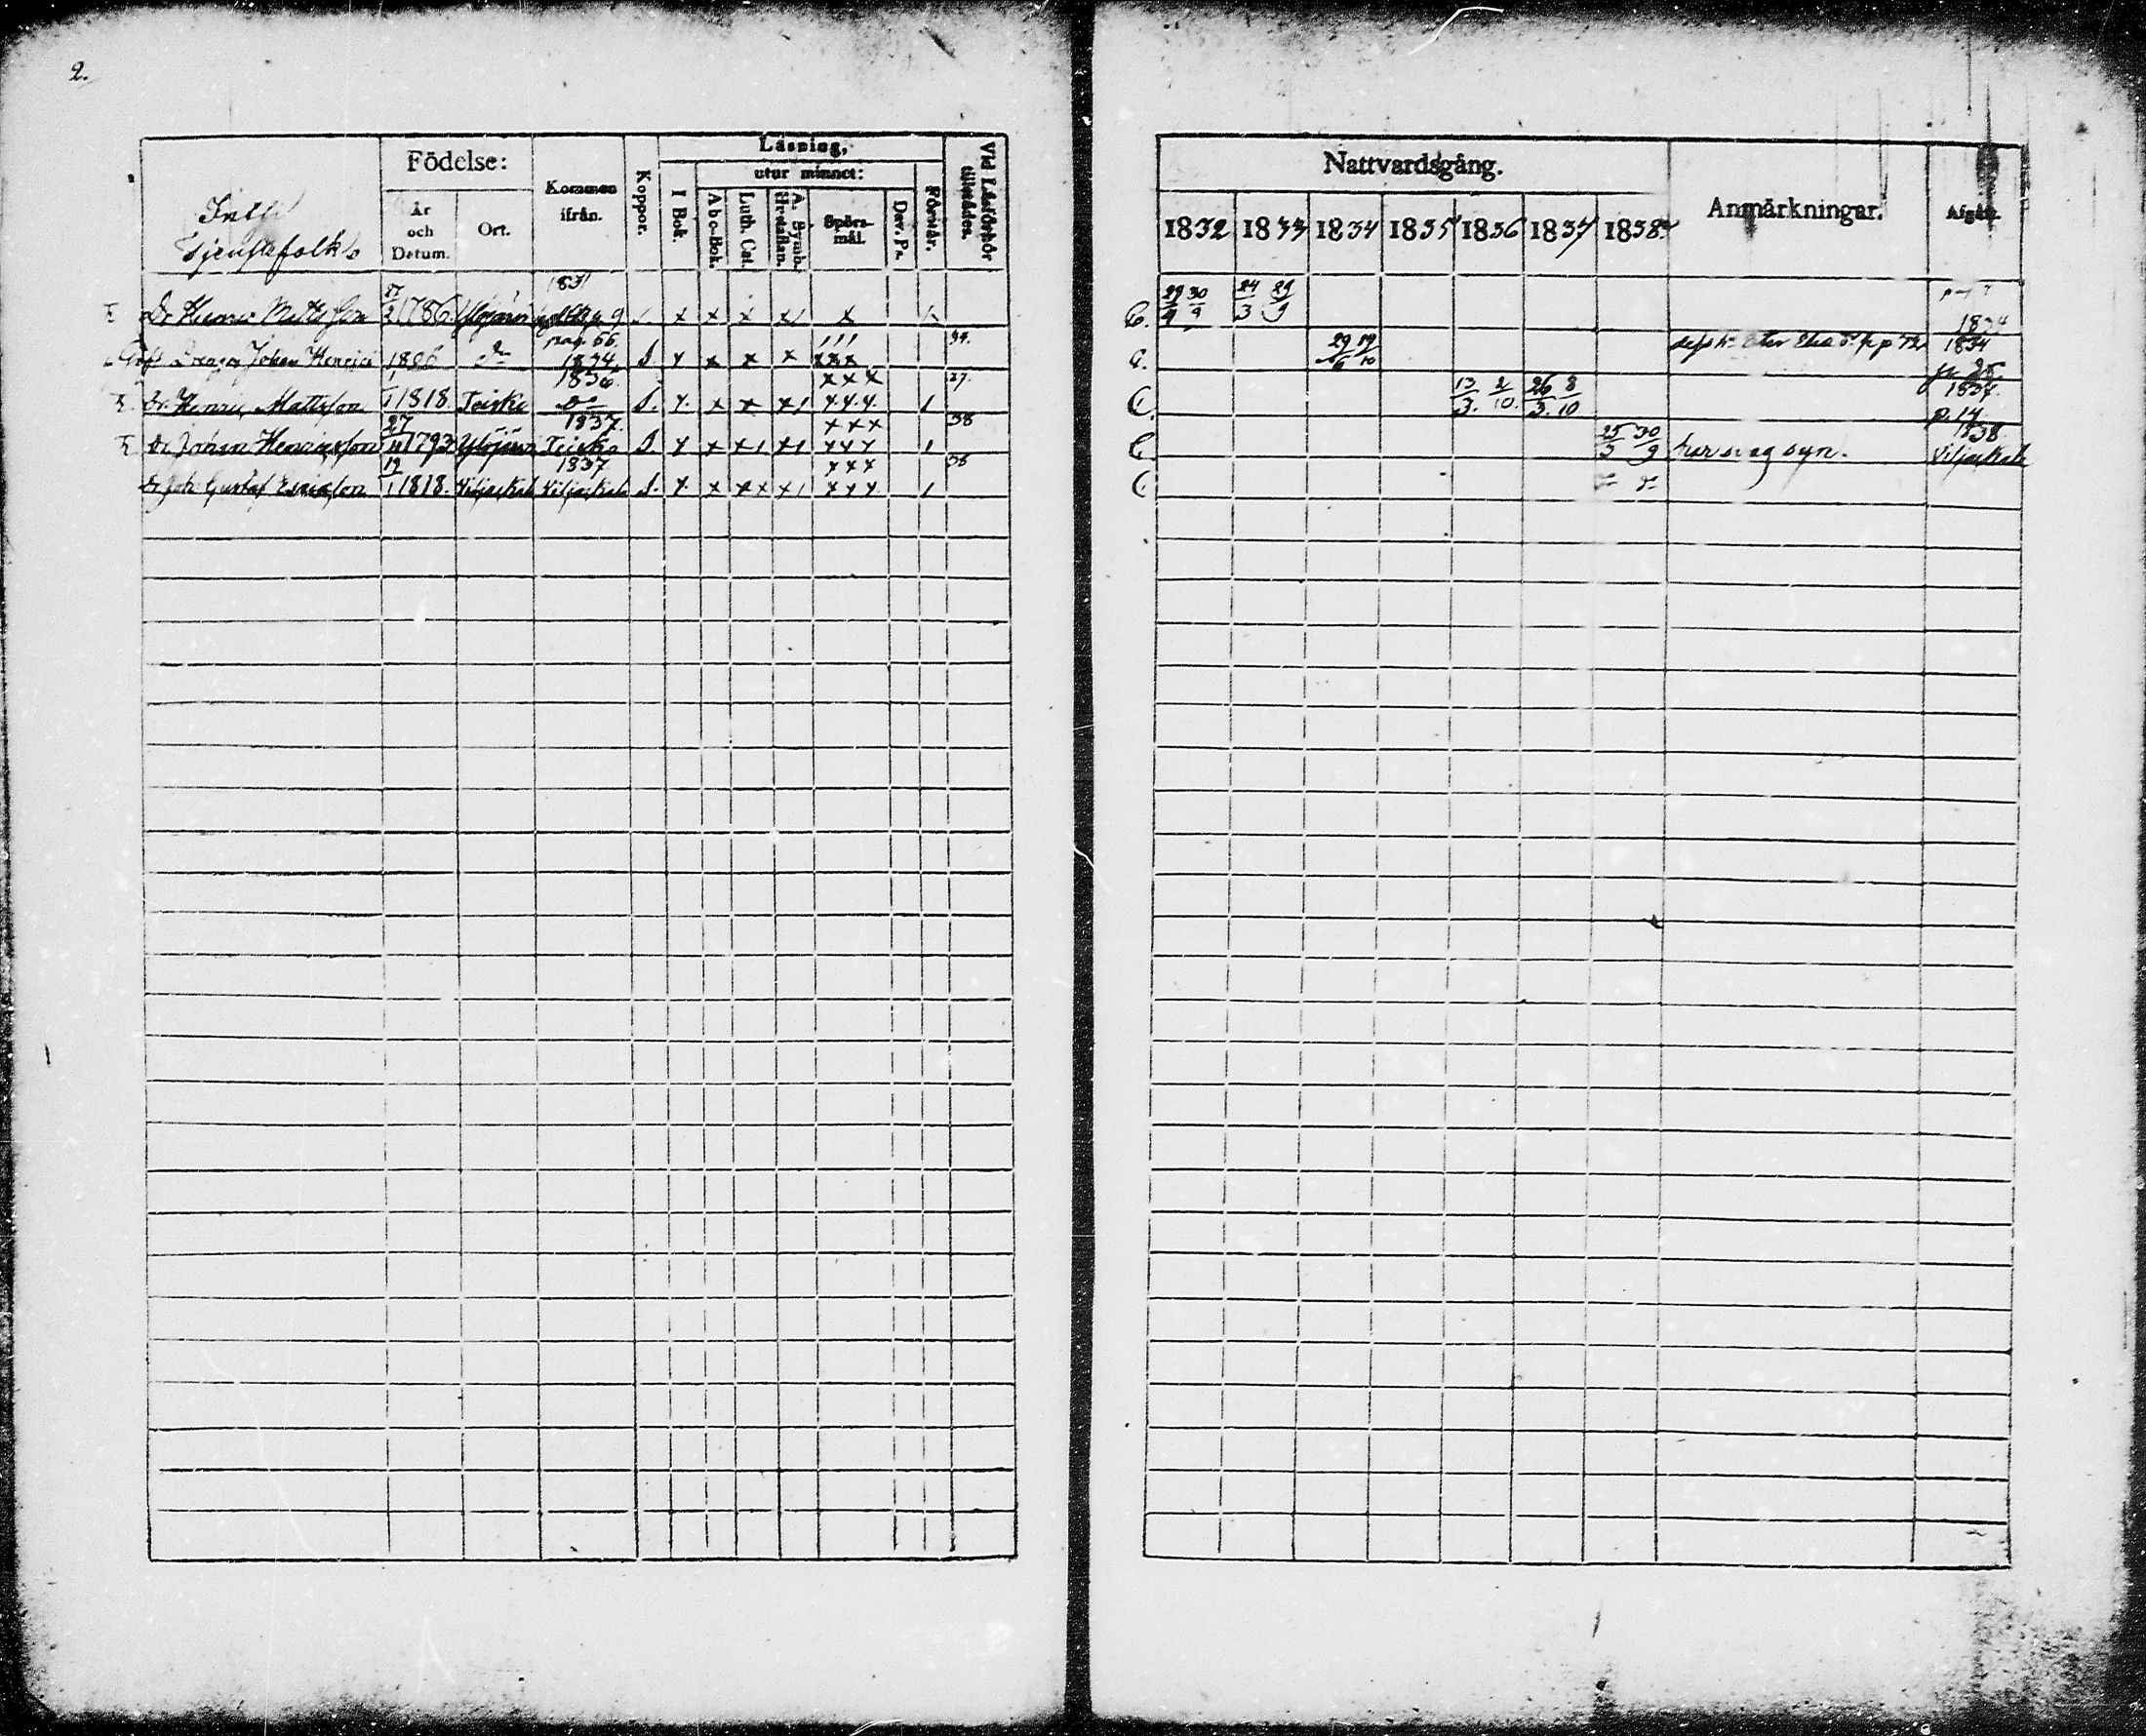 2.
Födelse:
År och Datum.
Ort.
Kommen ifrån.
Koppor.
Läsning,
utur minnet:
I Bok.
Abc-Bok.
Luth. Cat.
A. Symb.
Spörsmål.
Dav. Ps.
Förstår.
Vid Läsförhör tillstädes.
Tjenstefolk
Dr Henric Mattsson 1786 Ylöjärvi 1831 p. 9 x x x x x
Drengen Johan Henrics 1806 Do pag. 66. 1834 S. x x x x x x x 34.
Dr. Henric Mattsson 1/1 1818 Teisko 1836 Do S. x. x x x 1 x x x x x x 1 37.
Dr. Johan Henricsson 27/11 1793 Ylöjärvi 1837 Teisko S. x x x 1 x 1 x x x x x x 1 38
Dr Joh. Gustaf Ericsson 19/1 1818. Viljakkala 1837 Viljakkala S. x. x x x x 1 x x x x x x 1 38
Nattvardsgång.
1832 1833 1834 1835 1836 1837 1838
Anmärkningar.
Afgått.
C. 29/4 30/9 24/3 29/9 1834
C. 29/6 19/10 p 72 1834
C. 13/3. 2/10. 26/3. 8/10 1837
p. 14.
C. 25/3 30/9 har svag syn. 1838 Viljakkala
C. Do Do